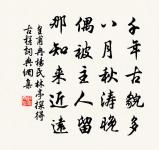 千年古貌多
八月秋濤晚
偶被主人留
那知來近遠
皇甫冉楊氏林亭探得
古槎詞典網集